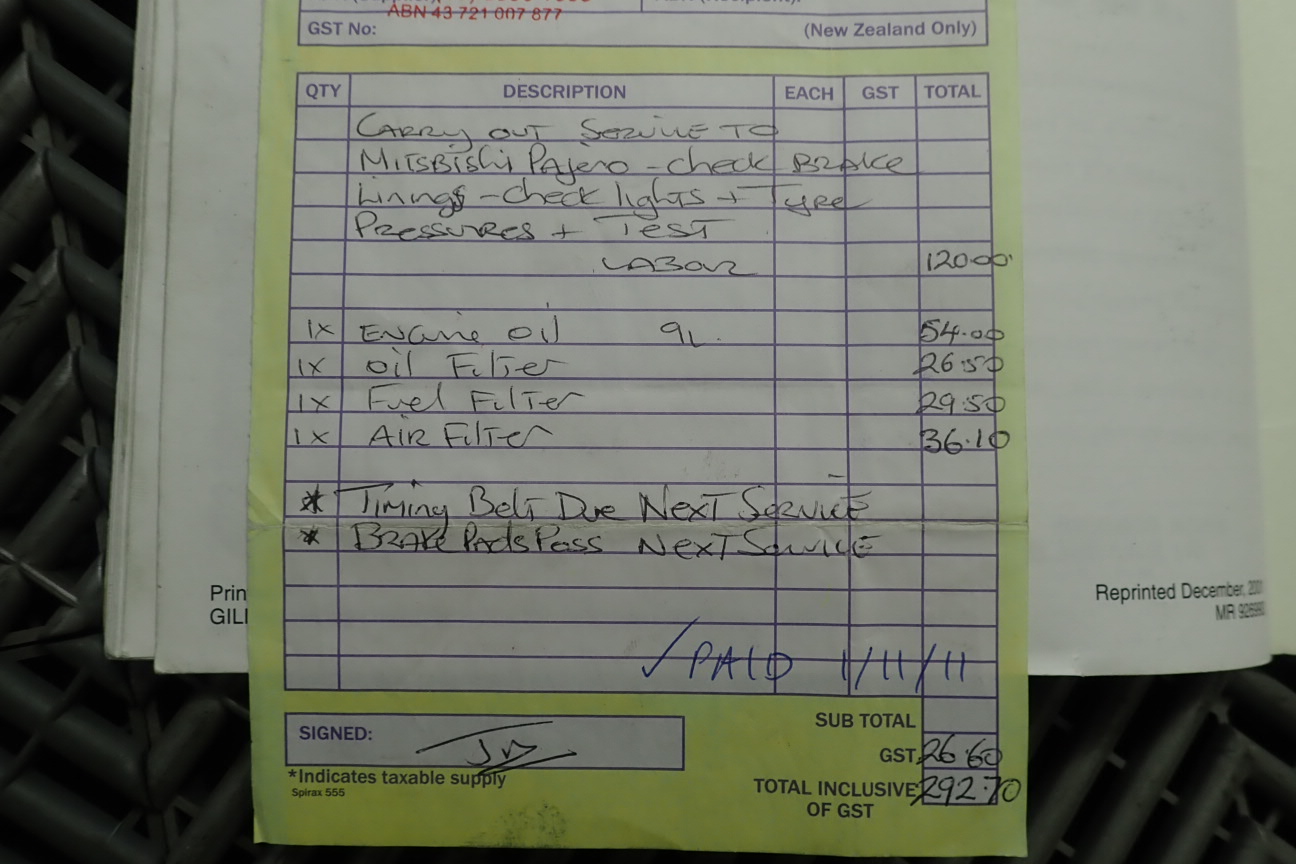 ABN 43 721 007 877
GST No: (New Zealand Only)
QTY DESCRIPTION EACH GST TOTAL
CARRY OUT SERVICE TO
MITSBISHI PAJERO - check BRAKE
Linings - check lights + Tyre
PRESSURES + TEST
LABOUR 120.00
1x ENGINE OIL 9L. 54.00
1x OIL FILTER 26.50
1x FUEL FILTER 29.50
1x AIR FILTER 36.10
* TIMING BELT DUE NEXT SERVICE
* BRAKE PADS PASS NEXT SERVICE
Prin
GILI
Reprinted December, 2001
✓ PAID 1/11/11
SUB TOTAL
SIGNED:
GST 26.60
*Indicates taxable supply
Spirax 555
TOTAL INCLUSIVE 292.70
OF GST